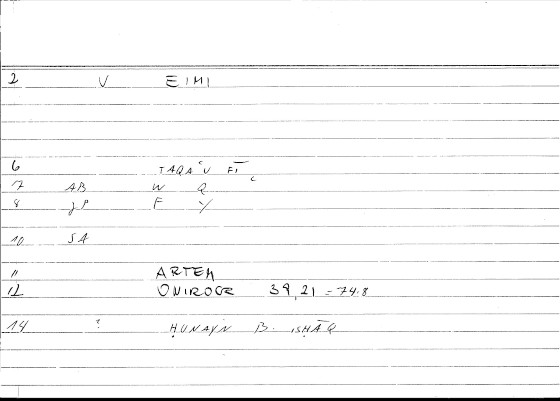 2 V EIMI
6 TAQAʿU FĪ
7 AB W Q
8 JP F Y
10 SA
11 ARTEM
12 ONIROCR 39,21 = 74.8
14 ? ḤUNAYN B. ISḤĀQ